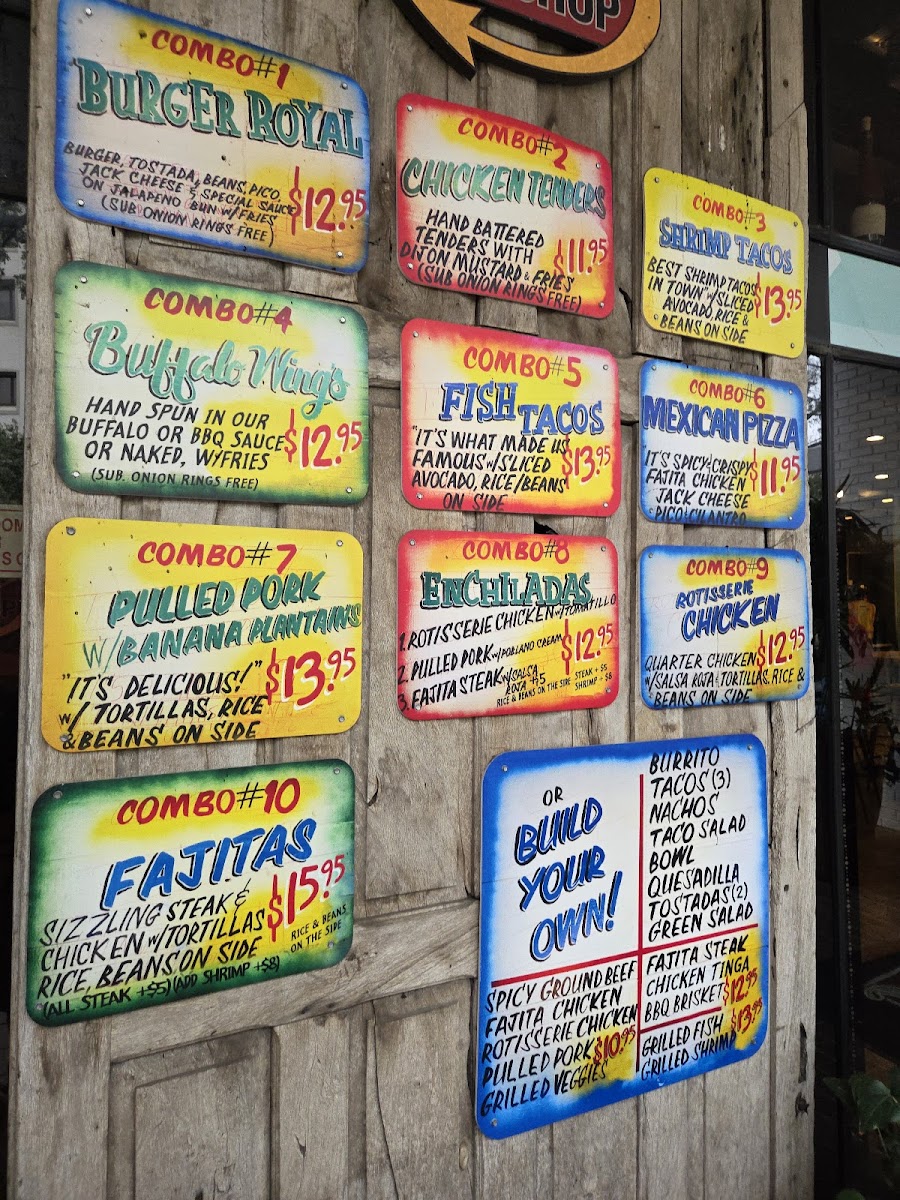 SHOP
COMBO #1
BURGER ROYAL
BURGER, TOSTADA, BEANS, PICO,
JACK CHEESE & SPECIAL SAUCE
ON JALAPENO BUN W/FRIES
(SUB ONION RINGS FREE)
$12.95
COMBO #2
CHICKEN TENDERS
HAND BATTERED
TENDERS WITH
DIJON MUSTARD & FRIES
(SUB ONION RINGS FREE)
$11.95
COMBO #3
SHRIMP TACOS
BEST SHRIMP TACOS
IN TOWN W/SLICED
AVOCADO, RICE &
BEANS ON SIDE
$13.95
COMBO #4
Buffalo Wing's
HAND SPUN IN OUR
BUFFALO OR BBQ SAUCE
OR NAKED, W/FRIES
(SUB. ONION RINGS FREE)
$12.95
COMBO #5
FI$H TACOS
"IT'S WHAT MADE US
FAMOUS W/SLICED
AVOCADO, RICE/BEANS
ON SIDE
$13.95
COMBO #6
MEXICAN PIZZA
IT'S SPICY & CRISPY
FAJITA CHICKEN
JACK CHEESE
PICO & CILANTRO
$11.95
COMBO #7
PULLED PORK
W/BANANA PLANTAINS
"IT'S DELICIOUS!"
W/ TORTILLAS, RICE
& BEANS ON SIDE
$13.95
COMBO #8
ENCHILADAS
1. ROTISSERIE CHICKEN W/TOMATILLO
2. PULLED PORK W/POBLANO CREAM
3. FAJITA STEAK W/SALSA
ROJA +$5
RICE & BEANS ON THE SIDE
STEAK + $5
SHRIMP + $6
$12.95
COMBO #9
ROTISSERIE
CHICKEN
QUARTER CHICKEN
W/SALSA ROJA & TORTILLAS, RICE &
BEANS ON SIDE
$12.95
COMBO #10
FAJITAS
SIZZLING STEAK &
CHICKEN W/TORTILLAS
RICE, BEANS ON SIDE
(ALL STEAK +$5) (ADD SHRIMP +$8)
$15.95
RICE & BEANS
ON THE SIDE
OR
BUILD
YOUR
OWN!
BURRITO
TACOS (3)
NACHOS
TACO SALAD
BOWL
QUESADILLA
TOSTADAS (2)
GREEN SALAD
SPICY GROUND BEEF
FAJITA CHICKEN
ROTISSERIE CHICKEN
PULLED PORK
GRILLED VEGGIES
$10.95
FAJITA STEAK
CHICKEN TINGA
BBQ BRISKET
$12.95
GRILLED FISH
GRILLED SHRIMP
$13.95